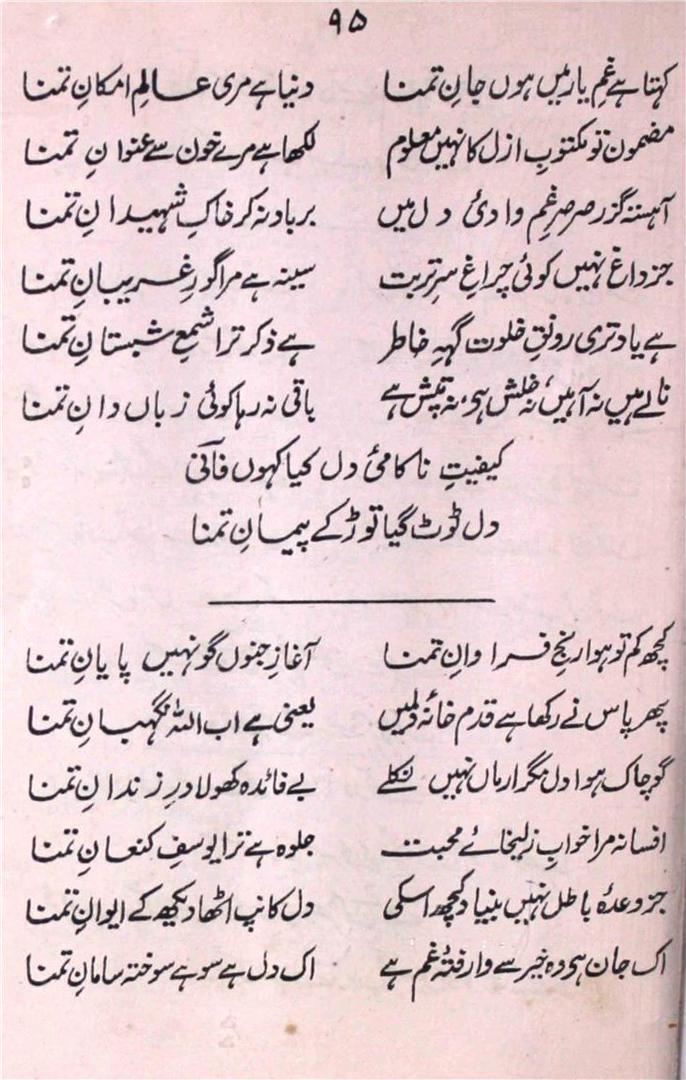 ۹۵
کہتا ہے غمِ یار میں ہوں جانِ تمنا دنیا ہے مری عالمِ امکانِ تمنا
مضمون تو مکتوبِ ازل کا نہیں معلوم لکھا ہے مرے خون سے عنوانِ تمنا
آہستہ گزر صرصرِ غم وادیٔ دل میں برباد نہ کر خاکِ شہیدانِ تمنا
جز داغ نہیں کوئی چراغِ سرِ تربت سینہ ہے مرا گورِ غریبانِ تمنا
ہے یاد تری رونقِ خلوت گہہِ خاطر ہے ذکر ترا شمعِ شبستانِ تمنا
نالے ہیں نہ آہیں، نہ خلش ہی، نہ تپش ہے باقی نہ رہا کوئی زباں دانِ تمنا
کیفیتِ ناکامیٔ دل کیا کہوں فانیؔ
دل ٹوٹ گیا توڑ کے پیمانِ تمنا
کچھ کم تو ہوا رنجِ فراوانِ تمنا آغازِ جنوں گو نہیں پایانِ تمنا
پھر یاس نے رکھا ہے قدم خانۂ دلمیں یعنی ہے اب اللہ نگہبانِ تمنا
گو چاک ہوا دل مگر ارماں نہیں نکلے بے فائدہ کھولا درِ زندانِ تمنا
افسانہ مرا خوابِ زلیخائے محبت جلوہ ہے ترا یوسفِ کنعانِ تمنا
جز وعدۂ باطل نہیں بنیاد کچھ اسکی دل کانپ اٹھا دیکھ کے ایوانِ تمنا
اک جان ہی وہ خیر سے وارفتۂ غم ہے اک دل ہے سو ہے سوختہ سامانِ تمنا